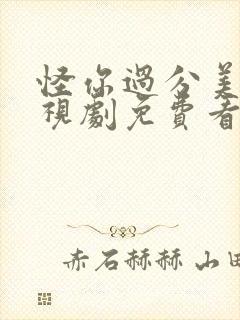 怪你過分美
視劇免費看
赤石赫赫 山田